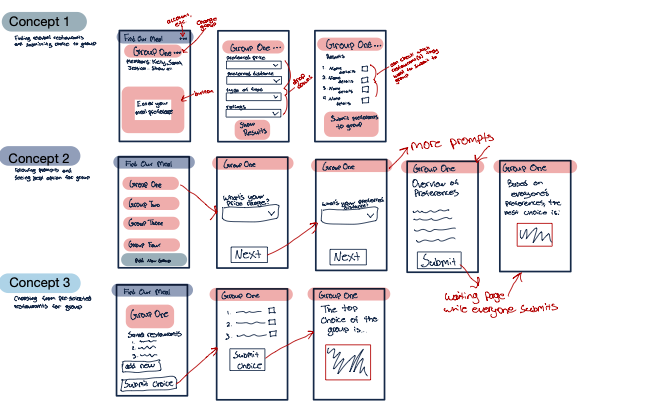 Concept 1
Finding relevant restaurants
and submitting choice to group
Find Our Meal
...
account,
etc
change
group
Group One...
Members: Kelly, Sarah
Jessica, Show all
Enter your
meal preferences
button
Group One...
preferred price
preferred distance
type of food
ratings
drop
downs
Show
Results
Group One...
Results
1. Name
details
2. Name
details
3. Name
details
4. Name
details
want to submit to
group
Submit preferences
to group
Concept 2
Following prompts and
seeing best option for group
Find Our Meal
Group One
Group Two
Group Three
Group Four
Add New Group
Group One
What's your
price range?
Next
Group One
What's your preferred
distance?
Next
More prompts
Group One
Overview of
Preferences
Submit
Group One
Based on
everyone's
preferences, the
best choice is:
waiting page
while everyone submits
Concept 3
Choosing from pre-selected
restaurants for group
Find Our Meal
Group One
Saved restaurants
1.
2.
3.
add new
Submit Choice
Group One
1.
2.
3.
Submit
Choice
Group One
The top
choice of the
group is...